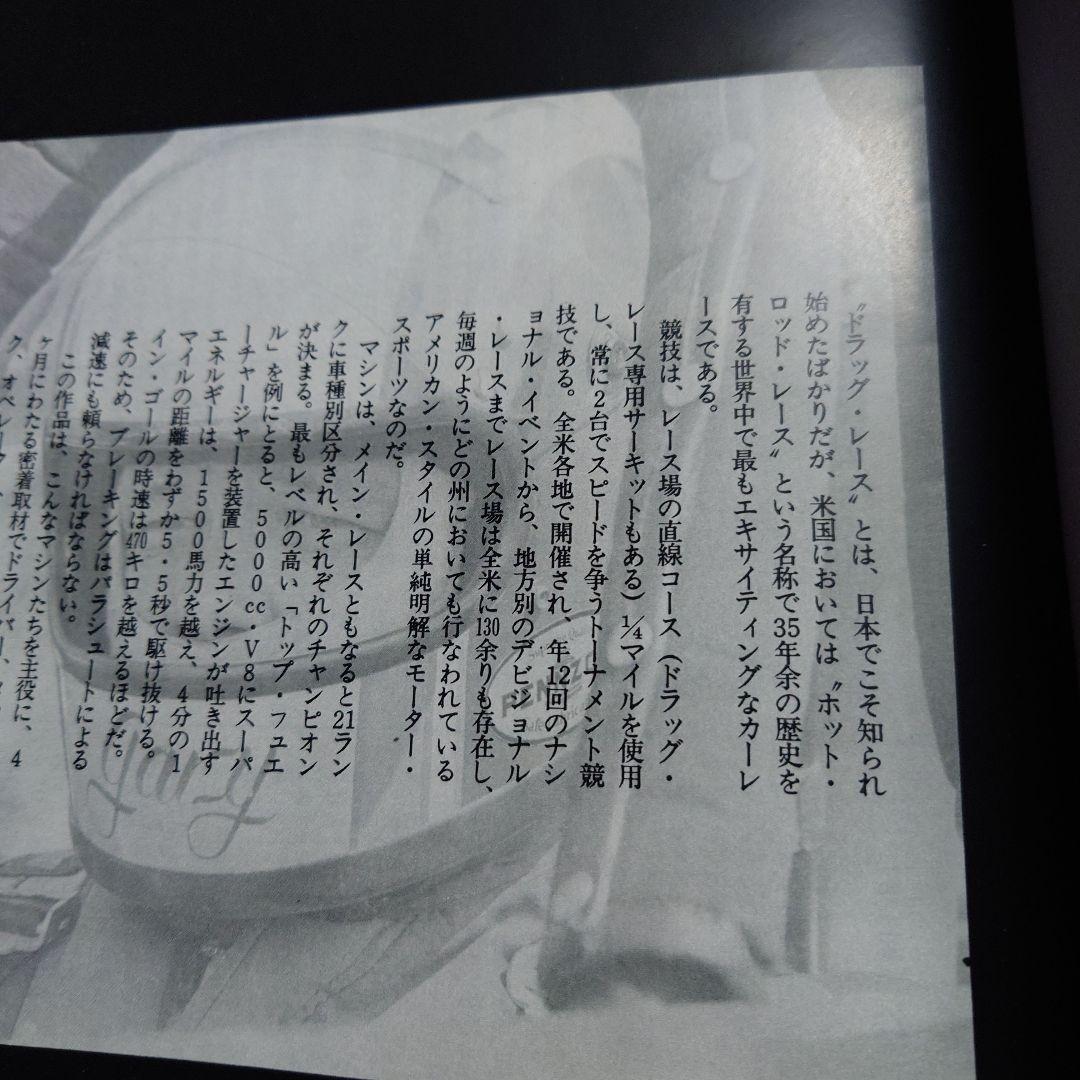 〝ドラッグ・レース〟とは、日本でこそ知られ
始めたばかりだが、米国においては〝ホット・
ロッド・レース〟という名称で35年余の歴史を
有する世界中で最もエキサイティングなカーレ
ースである。
競技は、レース場の直線コース（ドラッグ・
レース専用サーキットもある）¼マイルを使用
し、常に2台でスピードを争うトーナメント競
技である。全米各地で開催され、年12回のナシ
ョナル・イベントから、地方別のデビジョナル
・レースまでレース場は全米に130余りも存在し、
毎週のようにどの州においても行なわれている
アメリカン・スタイルの単純明解なモーター・
スポーツなのだ。
マシンは、メイン・レースともなると21ラン
クに車種別区分され、それぞれのチャンピオン
が決まる。最もレベルの高い「トップ・フュエ
ル」を例にとると、5000cc・V8にスーパ
ーチャージャーを装置したエンジンが吐き出す
エネルギーは、1500馬力を越え、4分の1
マイルの距離をわずか5・5秒で駆け抜ける。
イン・ゴールの時速は470キロを越えるほどだ。
そのため、ブレーキングはパラシュートによる
減速にも頼らなければならない。
この作品は、こんなマシンたちを主役に、4
ヶ月にわたる密着取材でドライバー、
ク、オペレーター